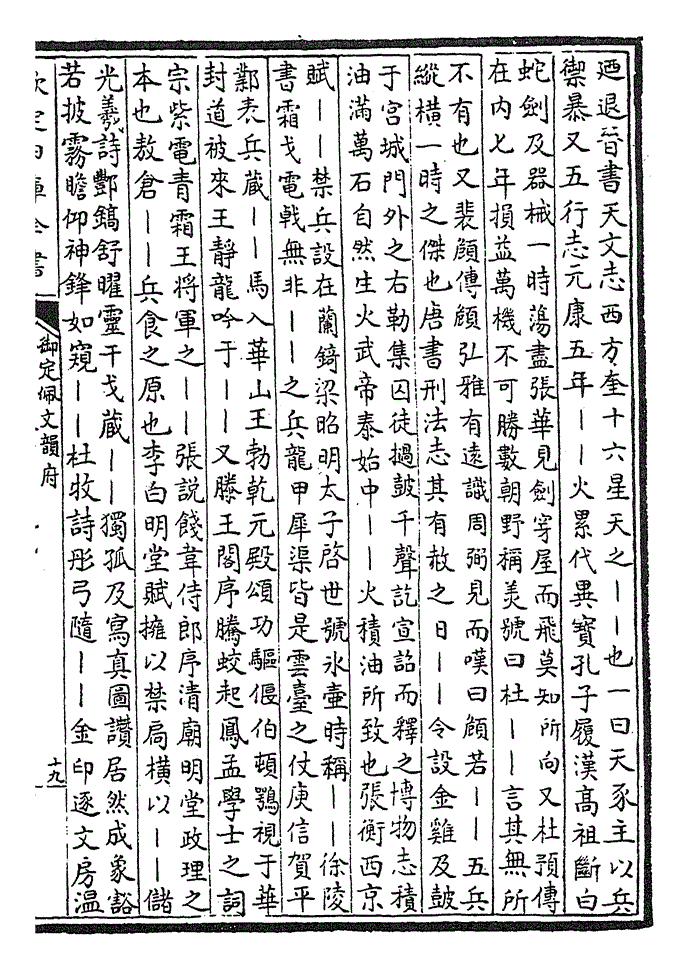 迺退晉書天文志西方奎十六星天之——也一曰天豕主以兵
禦暴又五行志元康五年——火累代異寶孔子履漢高祖斷白
蛇劍及器械一時蕩盡張華見劍穿屋而飛莫知所向又杜預傳
在内七年損益萬機不可勝數朝野稱美號曰杜——言其無所
不有也又裴頠傳頠弘雅有遠識周弼見而嘆曰頠若——五兵
縱横一時之傑也唐書刑法志其有赦之日——令設金雞及鼓
于宫城門外之右勒集囚徒撾鼓千聲訖宣詔而釋之博物志積
油滿萬石自然生火武帝泰始中——火積油所致也張衡西京
賦——禁兵設在蘭錡梁昭明太子啓世號氷壺時稱——徐陵
書霜戈電戟無非——之兵龍甲犀渠皆是雲臺之仗庾信賀平
鄴表兵蔵——馬入華山王勃乾元殿頌功驅偃伯頓鶚視于華
封道被來王靜龍吟于——又滕王閣序騰蛟起鳳孟學士之詞
宗紫電青霜王將軍之——張說餞韋侍郎序清廟明堂政理之
本也敖倉——兵食之原也李白明堂賦擁以禁扃横以——儲
光羲詩酆鎬舒曜靈干戈蔵——獨孤及寫真圖讚居然成象豁
若披霧瞻仰神鋒如窺——杜牧詩彤弓隨——金印逐文房温
欽定四庫全書
御定佩文韻府
十九